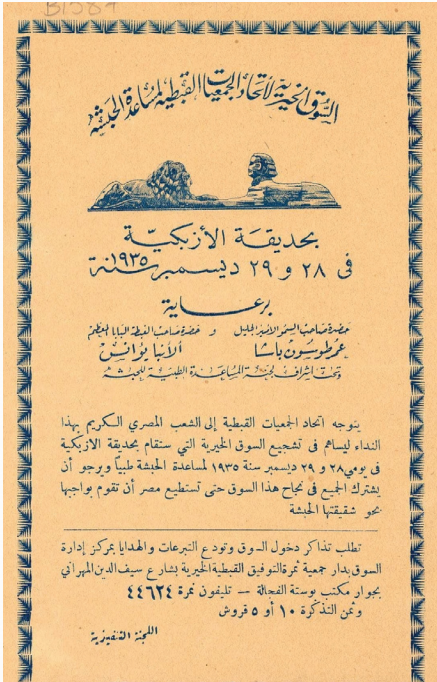 B1584
السوق الخيرية لاتحاد الجمعيات القبطية لمساعدة الحبشة
بحديقة الأزبكية
فى ٢٨ و ٢٩ ديسمبر سنة ١٩٣٥
برعاية
حضرة صاحب السمو الأمير الجليل و حضرة صاحب الغبطة البابا المعظم
عمر طوسون باشا الأنبا يؤانس
وتحت إشراف لجنة المساعدة الطبية للحبشة
يتوجه اتحاد الجمعيات القبطية إلى الشعب المصري الكريم بهذا
النداء ليساهم فى تشجيع السوق الخيرية التي ستقام بحديقة الازبكية
فى يومي ٢٨ و ٢٩ ديسمبر سنة ١٩٣٥ لمساعدة الحبشة طبياً ويرجو أن
يشترك الجميع فى نجاح هذا السوق حتى تستطيع مصر أن تقوم بواجبها
نحو شقيقتها الحبشة
تطلب تذاكر دخول السوق وتودع التبرعات والهدايا بمركز إدارة
السوق بدار جمعية ثمرة التوفيق القبطية الخيرية بشارع سيف الدين المهراني
بجوار مكتب بوستة الفجالة — تليفون نمرة ٤٤٦٢٤
وثمن التذكرة ١٠ أو ٥ قروش
اللجنة التنفيذية